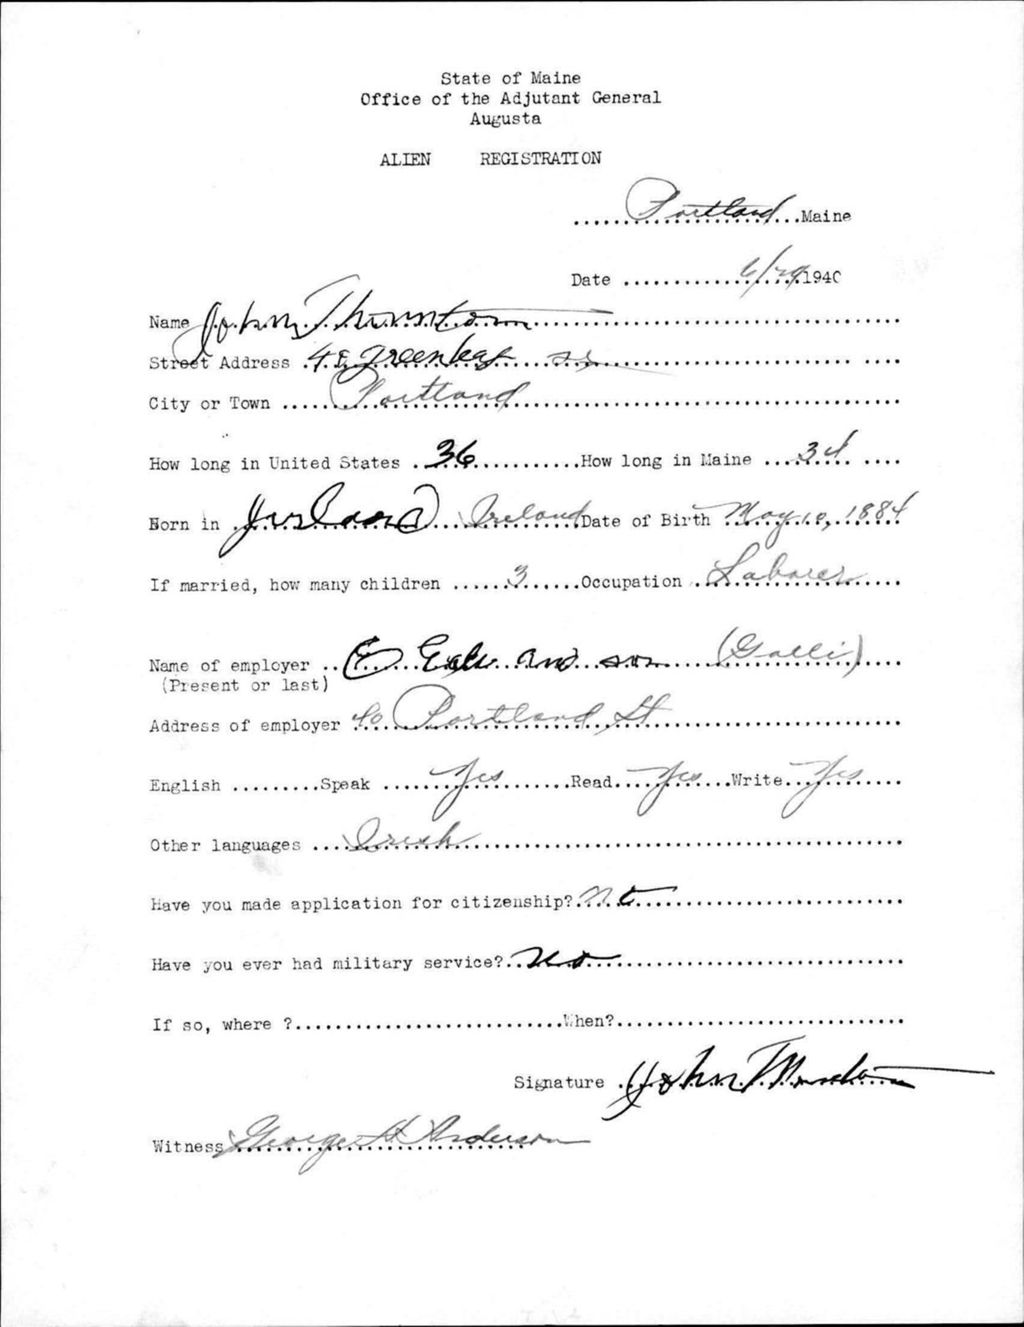 State of Maine
Office of the Adjutant General
Augusta
ALIEN REGISTRATION
Portland Maine
Date 6/29 1940
Name John Thornton
Street Address Greenleaf
City or Town Portland
How long in United States 36 How long in Maine 34
Born in Ireland Date of Birth May 10, 1884
If married, how many children 3 Occupation Laborer
Name of employer and son (Galli)
(Present or last)
Address of employer 40 Portland St
English Speak Yes Read Yes Write Yes
Other languages Irish
Have you made application for citizenship? No
Have you ever had military service? No
If so, where ? When?
Signature John Thornton
Witness George H Anderson